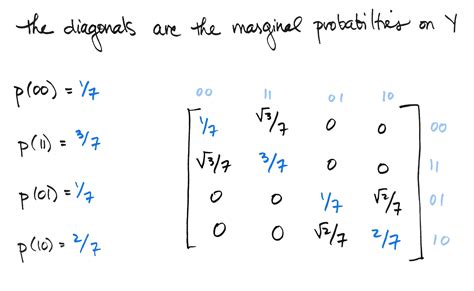 the diagonals are the marginal probabilties on Y
p(00) = 1/7
00 11 01 10
1/7 √3/7 0 0 00
p(11) = 3/7
√3/7 3/7 0 0 11
p(01) = 1/7
0 0 1/7 √2/7 01
p(10) = 2/7
0 0 √2/7 2/7 10